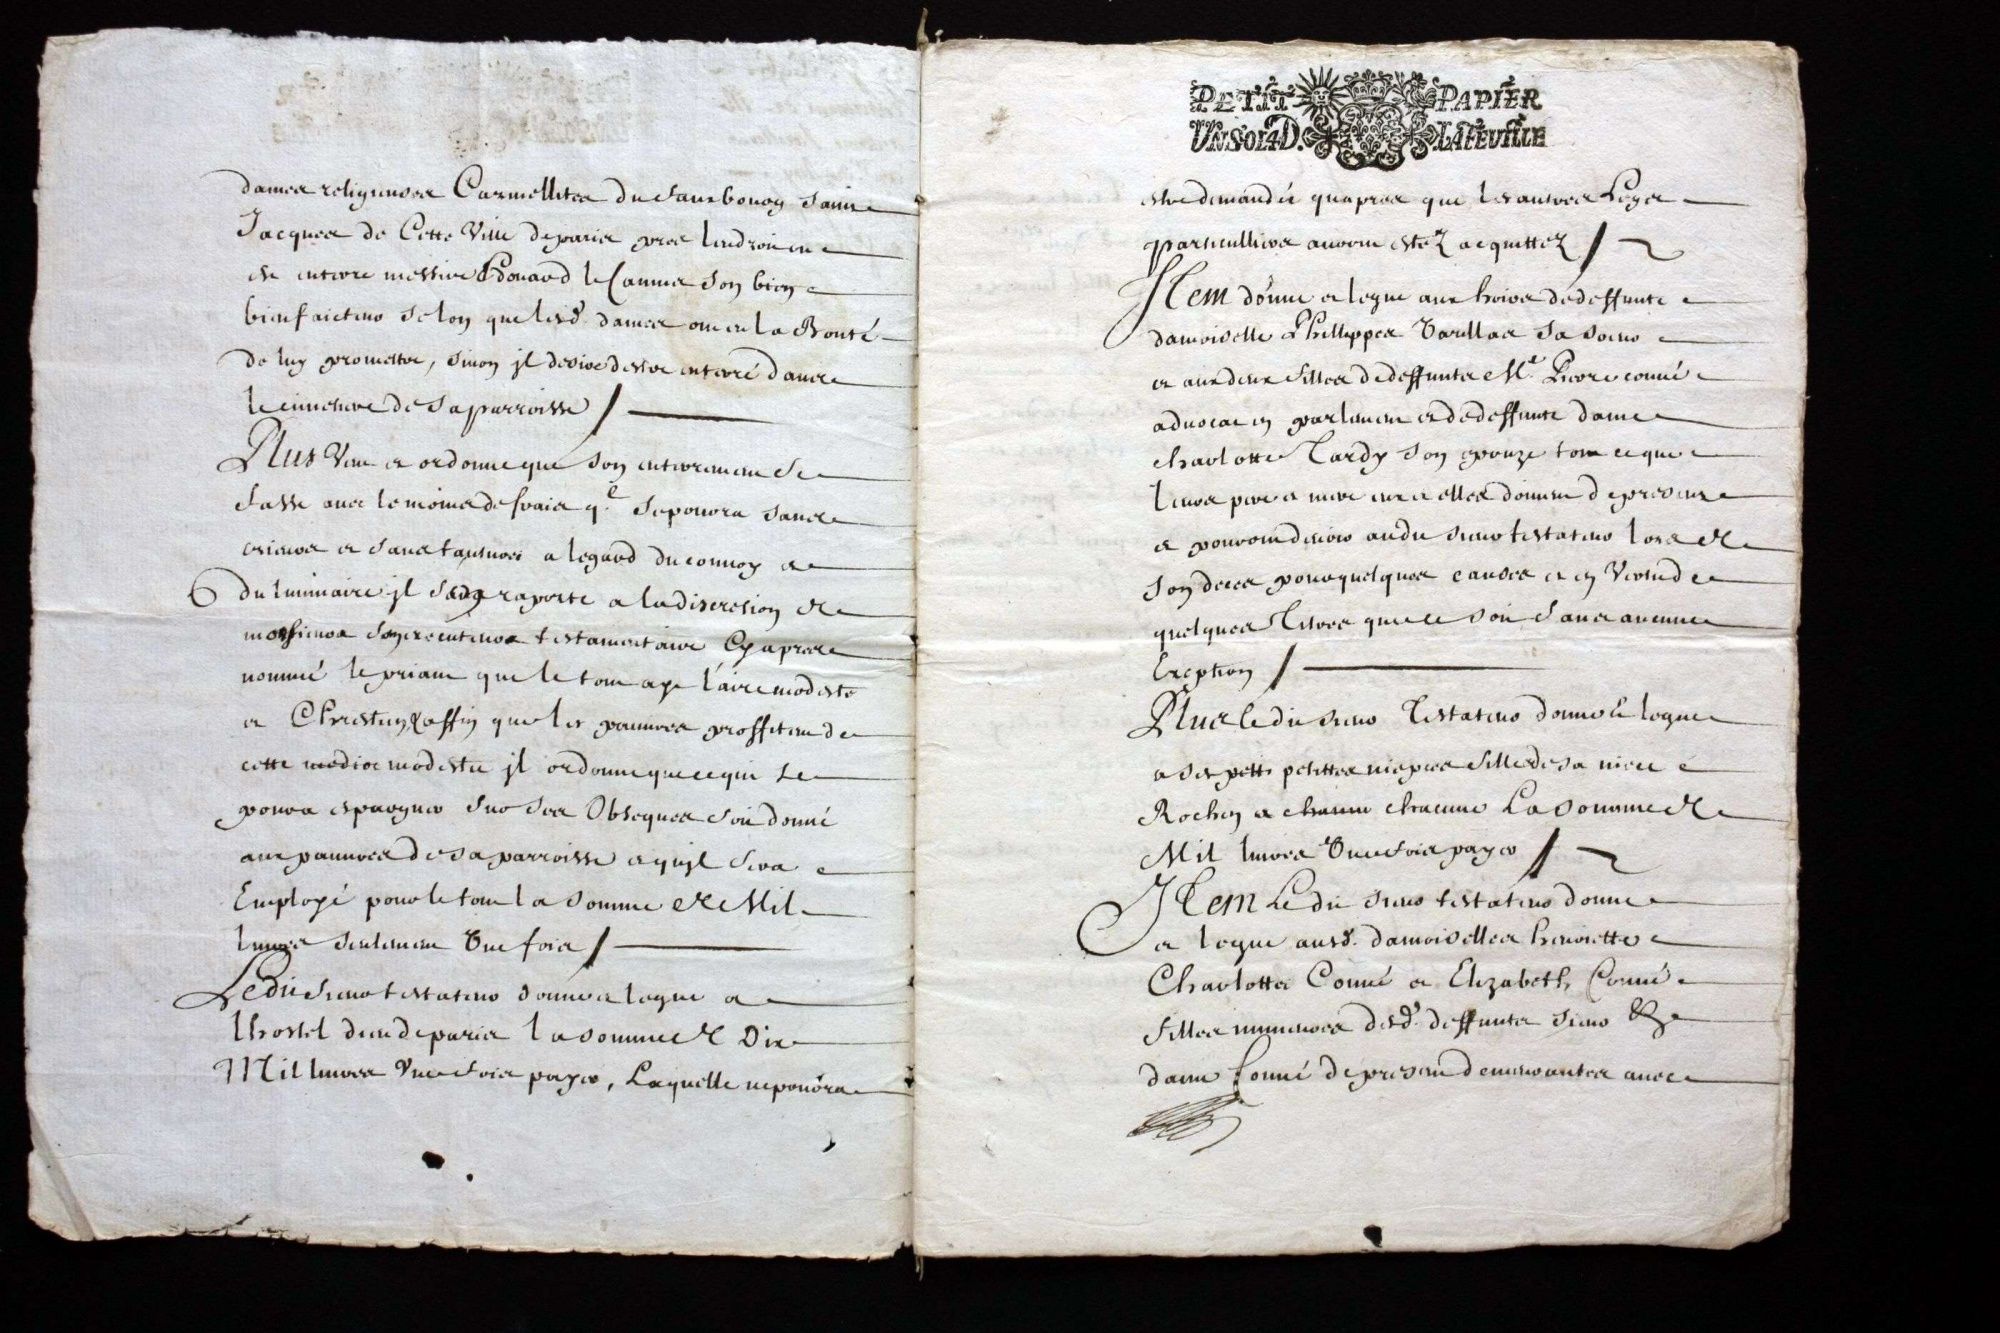 dames religieuses Carmellites du faurbourg Saint
Jacques de Cette Ville de paris pres lendroit ou
est enterré messire Edouard le Camus son bien
bienfaicteur selon que lesd. dames ont eu la Bonté
de luy promettre, sinon jl desire destre enterré dans
le cimetiere de sa parroisse /
Plus Veut et ordonne que son enterrement se
fasse avec le moins de frais q. se poura sans
crieurs et sans tantures a legard du convoy et
du luminaire jl sen raporte a la discretion de
monsieur son executeur testamentaire Cy apres
nommé le priant que le tout aye l'air modeste
et Chrestien, et affin que les pauvres proffitent de
cette modestie jl ordonne que ce qui se
poura espargner sur ses Obseques soit donné
aux pauvres de sa parroisse et qujl sera
Employé pour le tout la somme de Mil
livres seulement Une fois /
Ledit sieur testateur donne et legue a
lhostel dieu de paris la somme de Dix
Mil livres Une fois payer, Laquelle ne poura
PETIT PAPIER
UN SOL 4 D. LA FEUILLE
estre demandée quapres que les autres Legs
particulliers auront estez acquittez /
Item donne et legue aux hoirs de deffunte
damoiselle Phillippes sa soeur
et aux deux filles de deffunts Me. Pierre conné
advocat en parlement et de deffunte dame
charlotte Tardy son epouze tout ce que
leurs pere et mere et elles doivent de present
et pourront devoir audit sieur testateur lors de
son deces pour quelques causes et en Vertu de
quelques Tiltres que ce soit sans aucune
Exception /
Plus ledit sieur Testateur donne et legue
a ses petittes niepces filles de sa niece
Rochon a chacune La somme de
Mil livres Une fois payer /
Item Ledit sieur testateur donne
et legue ausd. damoiselles henriette
Charlotte Conné et Elizabeth Conné
filles mineures desd. deffunts sieur et
dame Conné de present demeurantes avec